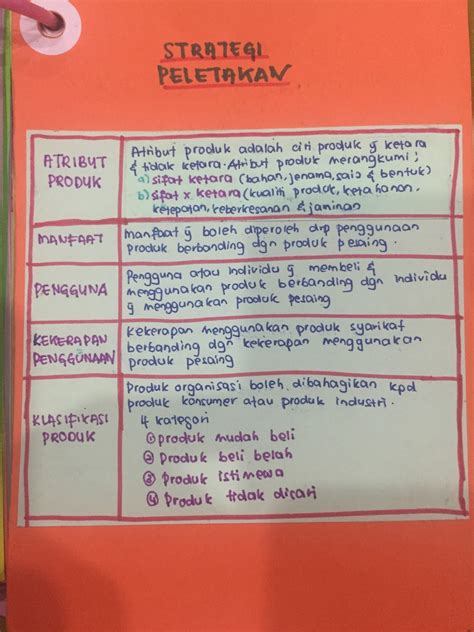 STRATEGI
PELETAKAN
ATRIBUT
PRODUK
Atribut produk adalah ciri produk yg ketara
& tidak ketara. Atribut produk merangkumi ;
a) sifat ketara (bahan, jenama, saiz & bentuk)
b) sifat x ketara (kualiti produk, ketahanan,
ketepatan, keberkesanan & jaminan
MANFAAT
manfaat yg boleh diperoleh drp penggunaan
produk berbanding dgn produk pesaing.
PENGGUNA
Pengguna atau individu yg membeli &
menggunakan produk berbanding dgn individu
yg menggunakan produk pesaing
KEKERAPAN
PENGGUNAAN
Kekerapan menggunakan produk syarikat
berbanding dgn kekerapan menggunakan
produk pesaing
KLASIFIKASI
PRODUK
Produk organisasi boleh dibahagikan kpd
produk konsumer atau produk industri.
4 kategori
① produk mudah beli
② Produk beli belah
③ Produk istimewa
④ Produk tidak dicari